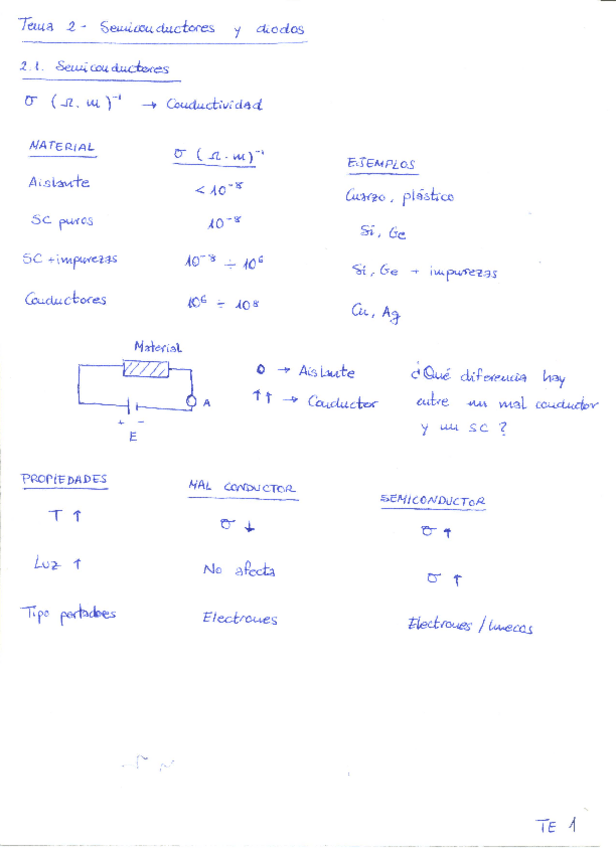 Tema 2 - Semiconductores y diodos
2.1. Semiconductores
σ (Ω.m)⁻¹ → Conductividad
MATERIAL σ (Ω.m)⁻¹ EJEMPLOS
Aislante < 10⁻⁸ Cuarzo, plástico
SC puros 10⁻⁸ Si, Ge
SC + impurezas 10⁻⁸ ÷ 10⁶ Si, Ge + impurezas
Conductores 10⁶ ÷ 10⁸ Cu, Ag
Material
0 → Aislante
↑↑ → Conductor
A
+ -
E
¿Qué diferencia hay
entre un mal conductor
y un SC?
PROPIEDADES MAL CONDUCTOR SEMICONDUCTOR
T ↑ σ ↓ σ ↑
Luz ↑ No afecta σ ↑
Tipo portadores Electrones Electrones / huecos
TE 1